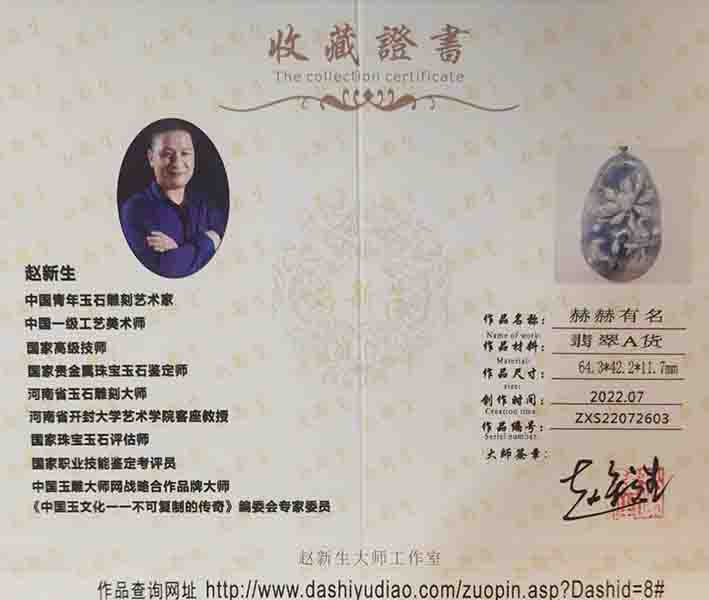 收藏證書
The collection certificate
赵新生
中国青年玉石雕刻艺术家
中国一级工艺美术师
国家高级技师
国家贵金属珠宝玉石鉴定师
河南省玉石雕刻大师
河南省开封大学艺术学院客座教授
国家珠宝玉石评估师
国家职业技能鉴定考评员
中国玉雕大师网战略合作品牌大师
《中国玉文化一一不可复制的传奇》编委会专家委员
作品名称: 赫赫有名
Name of work:
作品材料: 翡翠A货
Material:
作品尺寸: 64.3*42.2*11.7mm
size:
创作时间: 2022.07
Creation time:
作品编号: ZXS22072603
Serial number:
大师签章:
赵新生大师工作室
作品查询网址 http://www.dashiyudiao.com/zuopin.asp?Dashid=8#